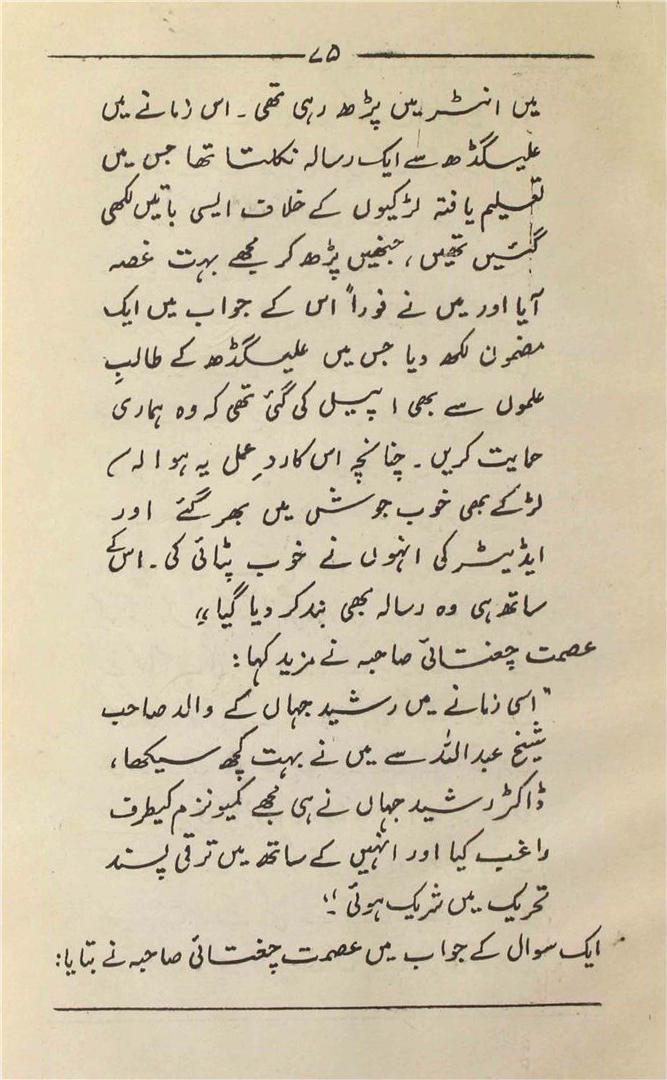 ۷۵
میں انٹر میں پڑھ رہی تھی۔ اس زمانے میں
علیگڈھ سے ایک رسالہ نکلتا تھا جس میں
تعلیم یافتہ لڑکیوں کے خلاف ایسی باتیں لکھی
گئیں تھیں، جنھیں پڑھ کر مجھے بہت غصہ
آیا اور میں نے فوراً اس کے جواب میں ایک
مضمون لکھ دیا جس میں علیگڈھ کے طالبِ
علموں سے بھی اپیل کی گئی تھی کہ وہ ہماری
حمایت کریں۔ چنانچہ اس کا ردِ عمل یہ ہوا کہ
لڑکے بھی خوب جوش میں بھر گئے اور
ایڈیٹر کی انہوں نے خوب پٹائی کی۔ اس کے
ساتھ ہی وہ رسالہ بھی بند کر دیا گیا،،
عصمت چغتائی صاحبہ نے مزید کہا:
"اسی زمانے میں رشید جہاں کے والد صاحب
شیخ عبداللہ سے میں نے بہت کچھ سیکھا،
ڈاکٹر رشید جہاں نے ہی مجھے کمیونزم کیطرف
راغب کیا اور انہیں کے ساتھ میں ترقی پسند
تحریک میں شریک ہوئی۔"
ایک سوال کے جواب میں عصمت چغتائی صاحبہ نے بتایا: